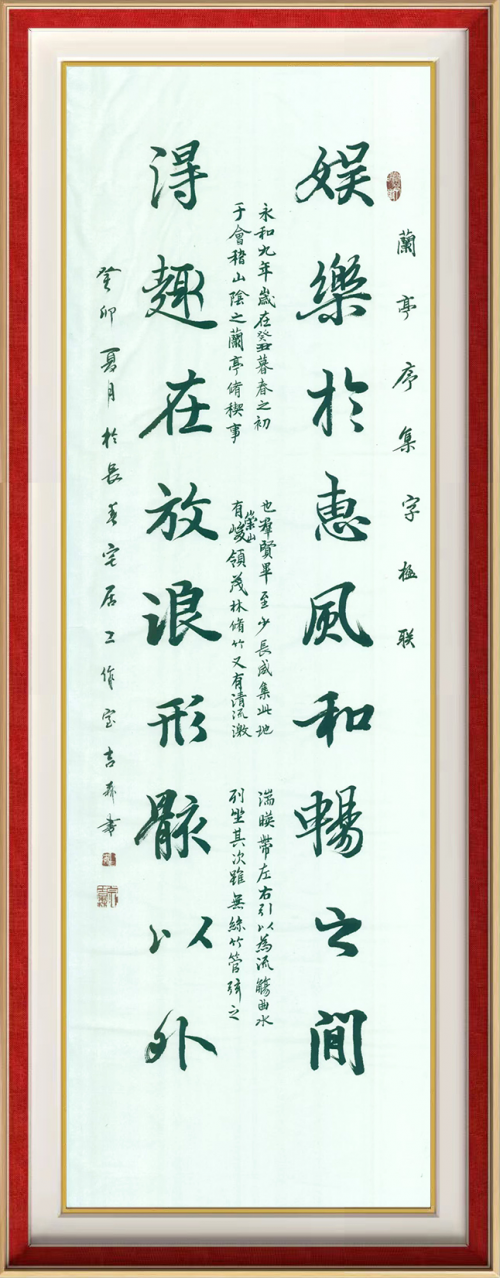 蘭亭序集字楹联
娱樂於惠風和暢之間
永和九年歲在癸丑暮春之初
于會稽山陰之蘭亭脩禊事
也羣賢畢至少長咸集此地
有崇山峻領茂林脩竹又有清流激
湍暎帶左右引以為流觴曲水
列坐其次雖無絲竹管弦之
得趣在放浪形骸以外
癸卯夏月於長春宅居工作室吉書